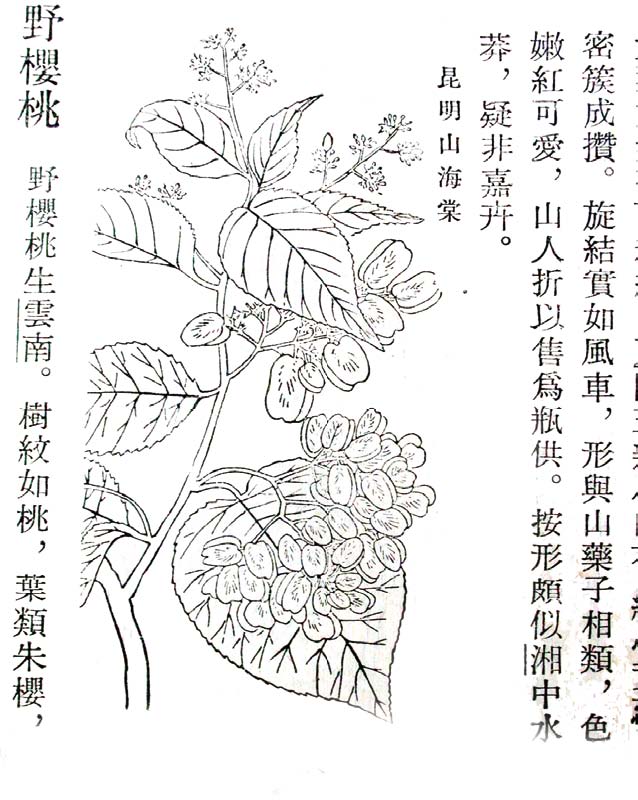 密簇成攢。旋結實如風車，形與山藥子相類，色
嫩紅可愛，山人折以售爲瓶供。按形頗似湘中水
莽，疑非嘉卉。
昆明山海棠
野櫻桃
野櫻桃生雲南。樹紋如桃，葉類朱櫻，